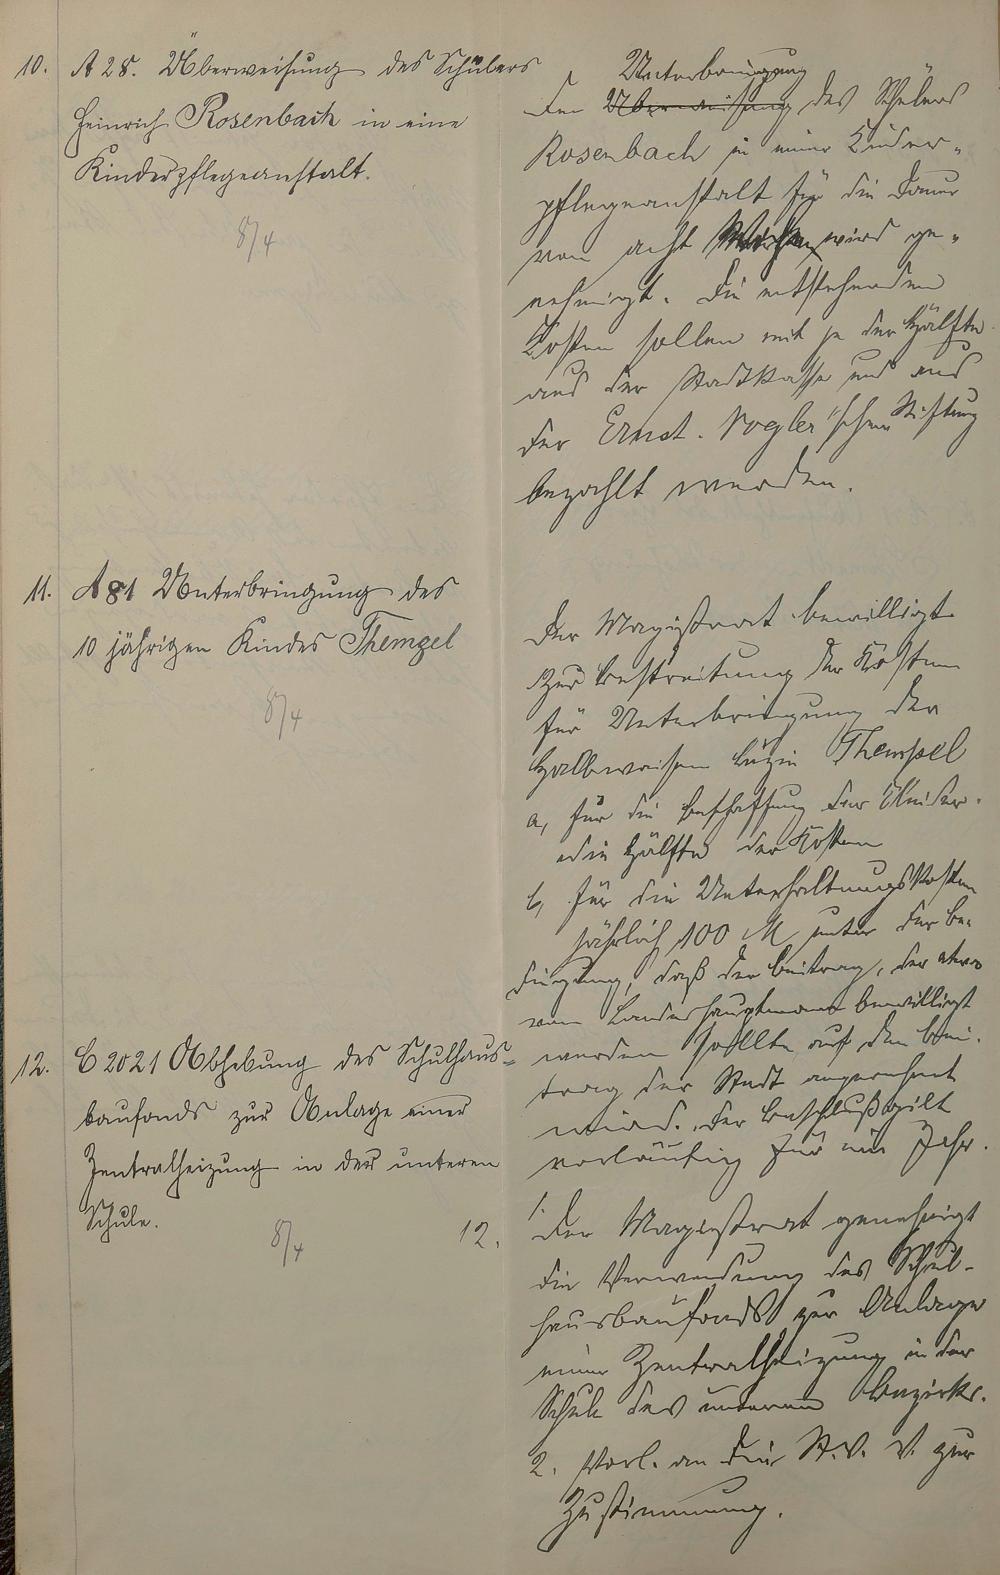 10. A 28. Überweisung des Schülers
Heinrich Rosenbach in eine
Kinderpflegeanstalt.
8/4
Unterbringung
Der Überweisung des Schülers
Rosenbach in einer Kinder-
pflegeanstalt für die Dauer
von acht Wochen wird ge-
nehmigt. Die entstehenden
Kosten sollen mit je der Hälfte
aus der Stadtkasse und aus
der Ernst-Vogler'schen Stiftung
bezahlt werden.
11. A 81 Unterbringung des
10 jährigen Kindes Themgel
8/4
Der Magistrat bewilligt
zur Bestreitung der Kosten
für Unterbringung der
Halbwaisen Themgel
a, für die Beschaffung der Kleider
die Hälfte der Kosten
b, für die Unterhaltungskosten
jährlich 100 M unter der Be-
dingung, daß der Beitrag, der etwa
vom Landeshauptmann bewilligt
werden sollte auf den Bei-
trag der Stadt angerechnet
wird. Der Beschluß gilt
vorläufig für ein Jahr.
12. C 2021 Abhebung des Schulhaus-
baufonds zur Anlage einer
Zentralheizung in der unteren
Schule.
8/4
12.
1. Der Magistrat genehmigt
die Verwendung des Schul-
hausbaufonds zur Anlage
einer Zentralheizung in der
Schule des unteren Bezirks.
2. Vorl. an die St.V.V. zur
Zustimmung.